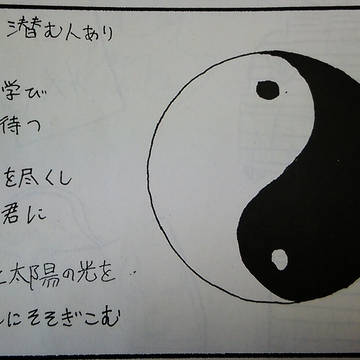 潜む人あり
学び
待つ
を尽くし
君に
太陽の光を
にそそぎこむ